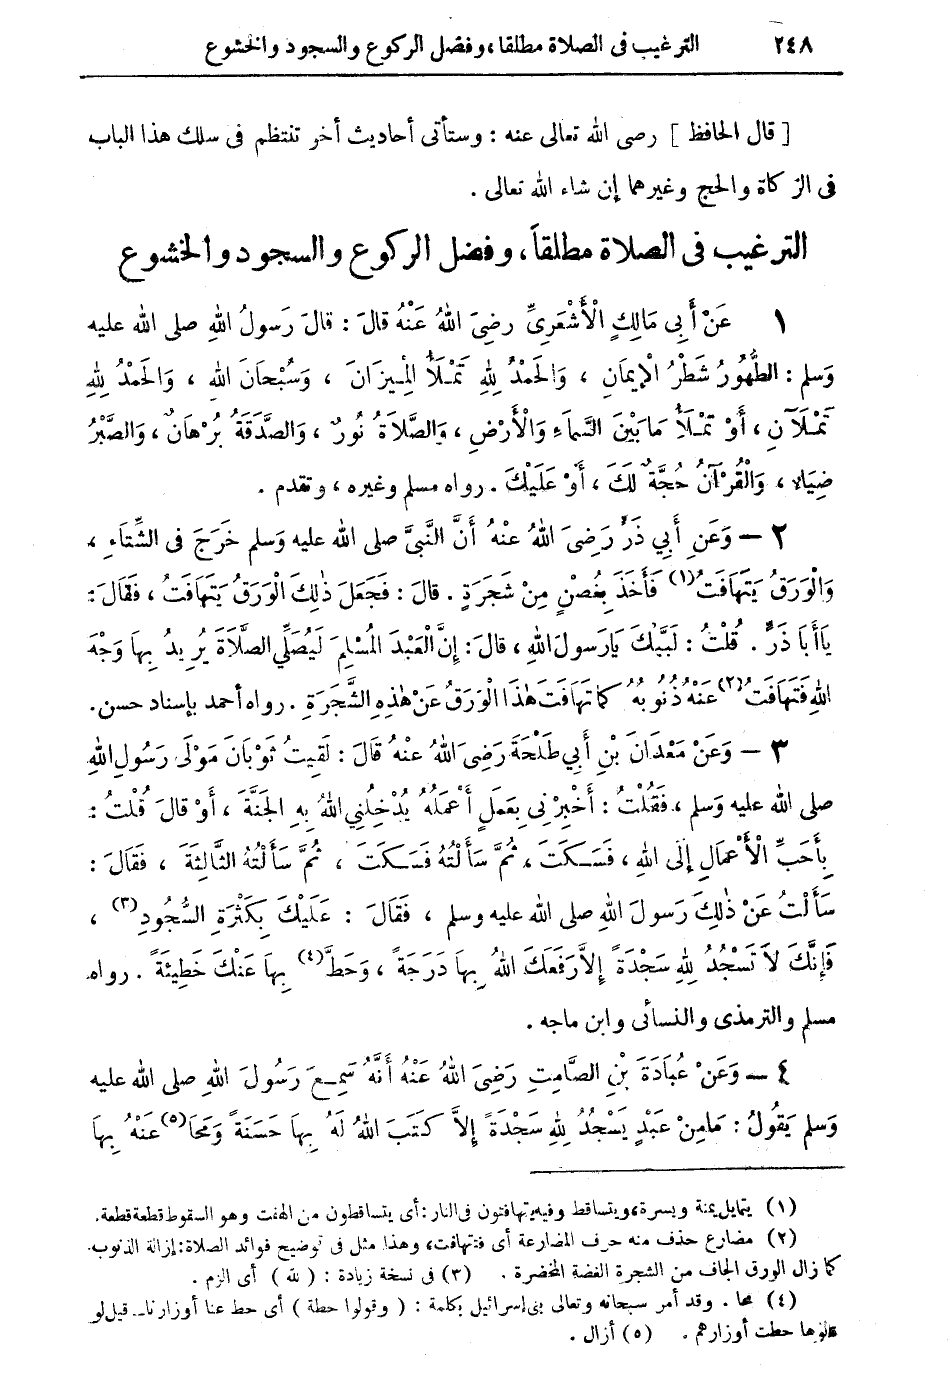 ٢٤٨ الترغيب فى الصلاة مطلقا، وفضل الركوع والسجود والخشوع
[ قال الحافظ ] رضى الله تعالى عنه : وستأتى أحاديث أخر تنتظم فى سلك هذا الباب
فى الزكاة والحج وغيرهما إن شاء الله تعالى .
الترغيب فى الصلاة مطلقاً، وفضل الركوع والسجود والخشوع
١ عَنْ أَبِي مَالِكٍ الْأَشْعَرِىِّ رضِىَ اللهُ عَنْهُ قالَ : قالَ رَسولُ اللهِ صلى الله عليه
وَسلم : الطُّهُورُ شَطْرُ الْإِيمَانِ ، وَالحَمْدُ لِلهِ تَمْلَأُ الْمِيزَانَ ، وَسُبْحَانَ اللهِ ، وَالحَمْدُ لِلهِ
تَمْلَآنِ ، أَوْ تَمْلَأُ مَا بَيْنَ السَّمَاءِ وَالْأَرْضِ ، وَالصَّلَاةُ نُورٌ ، وَالصَّدَقَةُ بُرْهَانٌ ، وَالصَّبْرُ
ضِيَاءٌ ، وَالْقُرْآنُ حُجَّةٌ لَكَ ، أَوْ عَلَيْكَ . رواه مسلم وغيره ، وتقدم .
٢ — وَعَنِ أَبِي ذَرٍّ رَضِىَ اللهُ عَنْهُ أَنَّ النَّبِىَّ صلى الله عليه وَسلم خَرَجَ فى الشِّتَاءِ ،
وَالْوَرَقُ يَتَهَافَتُ (١) فَأَخَذَ بِغُصْنٍ مِنْ شَجَرَةٍ . قالَ : فَجَعَلَ ذٰلِكَ الْوَرَقُ يَتَهَافَتُ ، فَقَالَ :
يَاأَبَا ذَرٍّ . قُلْتُ : لَبَّيْكَ يَارَسولَ اللهِ ، قالَ : إِنَّ الْعَبْدَ الْمُسْلِمَ لَيُصَلِّي الصَّلَاةَ يُرِيدُ بِهَا وَجْهَ
اللهِ فَتَهَافَتُ (٢) عَنْهُ ذُنُوبُهُ كما تَهَافَتَ هٰذَا الْوَرَقُ عَنْ هٰذِهِ الشَّجَرَةِ . رواه أحمد بإسناد حسن .
٣ — وَعَنْ مَعْدَانَ بْنِ أَبِي طَلْحَةَ رَضِىَ اللهُ عَنْهُ قَالَ : لَقِيتُ ثَوْبَانَ مَوْلَى رَسُولِ اللهِ
صلى الله عليه وسلم ، فَقُلْتُ : أَخْبِرْنِى بِعَمَلٍ أَعْمَلُهُ يُدْخِلُنِي اللهُ بِهِ الجَنَّةَ ، أَوْ قالَ قُلْتُ :
بِأَحَبِّ الْأَعْمَالِ إِلَى اللهِ ، فَسَكَتَ ، ثُمَّ سَأَلْتُهُ فَسَكَتَ ، ثُمَّ سَأَلْتُهُ الثَّالِثَةَ ، فَقَالَ :
سَأَلْتُ عَنْ ذٰلِكَ رَسولَ اللهِ صلى الله عليه وسلم ، فَقَالَ : عَلَيْكَ بِكَثْرَةِ السُّجُودِ (٣) ،
فَإِنَّكَ لَا تَسْجُدُ لِلهِ سَجْدَةً إِلاَّ رَفَعَكَ اللهُ بِهَا دَرَجَةً ، وَحَطَّ (٤) بِهَا عَنْكَ خَطِيئَةً . رواه
مسلم والترمذى والنسائى وابن ماجه .
٤ — وَعَنْ عُبَادَةَ بْنِ الصَّامِتِ رَضِىَ اللهُ عَنْهُ أَنَّهُ سَمِعَ رَسُولَ اللهِ صلى الله عليه
وَسلم يَقُولُ : مَا مِنْ عَبْدٍ يَسْجُدُ لِلهِ سَجْدَةً إِلاَّ كَتَبَ اللهُ لَهُ بِهَا حَسَنَةً وَمَحَا (٥) عَنْهُ بِهَا
(١) يتمايل يمنة ويسرة ، ويتساقط وفيه يتهافتون فى النار : أى يتساقطون من الهفت وهو السقوط قطعة قطعة .
(٢) مضارع حذف منه حرف المضارعة أى فتتهافت ، وهذا مثل فى توضيح فوائد الصلاة : إزالة الذنوب .
كما زال الورق الجاف من الشجرة الغضة المخضرة . (٣) فى نسخة زيادة : ( لله ) أى الزم .
(٤) محا . وقد أمر سبحانه وتعالى بنى إسرائيل بكلمة : ( وقولوا حطة ) أى حط عنا أوزارنا — قيل لو
قالوها حطت أوزارهم . (٥) أزال .